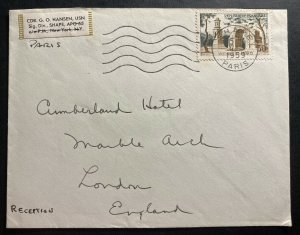 CDR. G. O. HANSEN, USN
Sig. Div., SHAPE, APO-55
New York, N.Y.
PARIS
REPUBLIQUE FRANCAISE
1959
PARIS
Cumberland Hotel
Marble Arch
London
England
RECEPTION